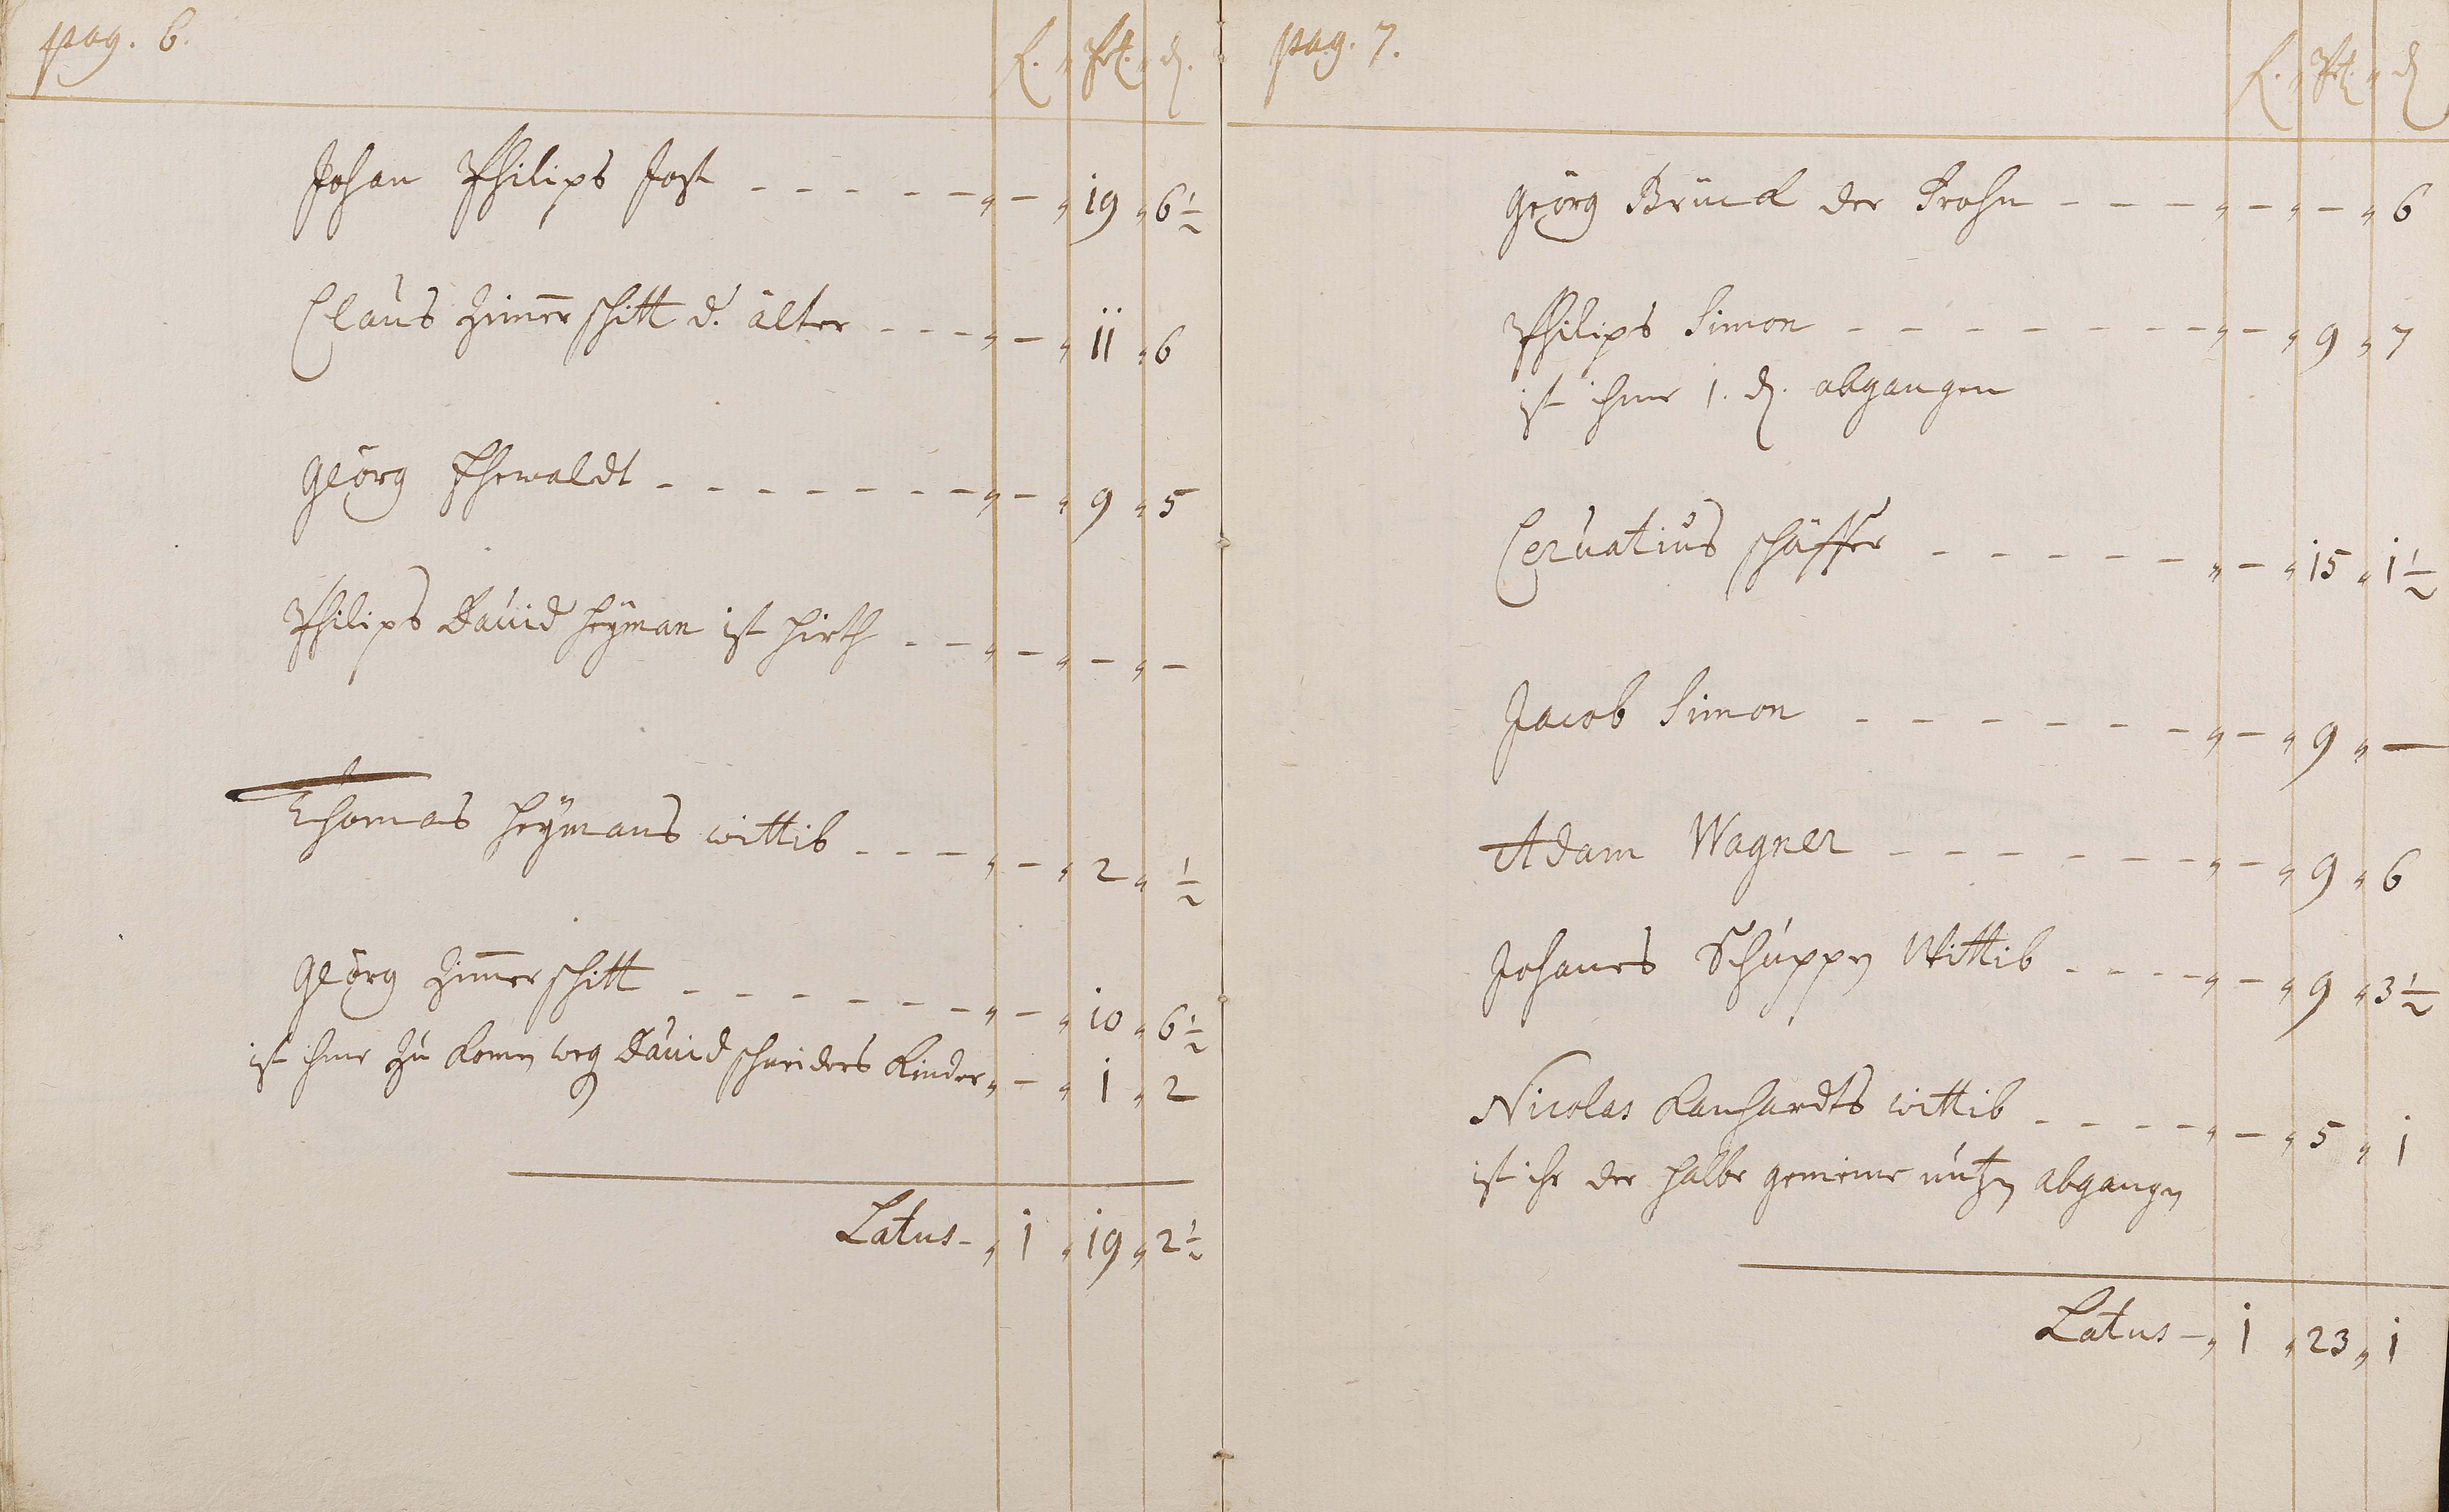 pag. 6.
f. " Pf. " d.
Johan Philips Jost - - - - - " - " 19 " 6 1/2
Claus Zimerschitt d. älter - - - " - " 11 " 6
Georg Ehewaldt - - - - - - - " - " 9 " 5
Philips David Heÿman ist Hirth - - " - " - " -
Thomas Heÿmans wittib - - - " - " 2 " 1/2
Georg Zimerschitt - - - - - - " - " 10 " 6 1/2
ist ihme zu komen weg David schneiders Kinder " - " 1 " 2
Latus - " 1 " 19 " 2 1/2
pag. 7.
f. " Pf. " d
Georg Brück der Frohn - - - " - " - " 6
Philips Simon - - - - - - - " - " 9 " 7
ist ihme 1. d. abgangen
Cervatius schäffer - - - - - " - " 15 " 1 1/2
Jacob Simon - - - - - - " - " 9 " -
Adam Wagner - - - - - - " - " 9 " 6
Johanes Schuppen Wittib - - - - " - " 9 " 3 1/2
Nicolas Lanhardts wittib - - - - " - " 5 " 1
ist ihr der halbe gemeine nutzen abgangen
Latus - " 1 " 23 " 1